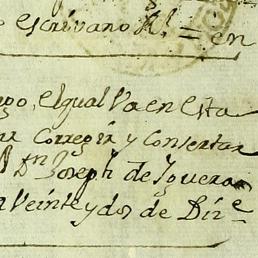 escrivano Rl = en
el qual va en esta
Corregir y Consertar
Dn Joseph de Yguera
Veinte y dos de Dize